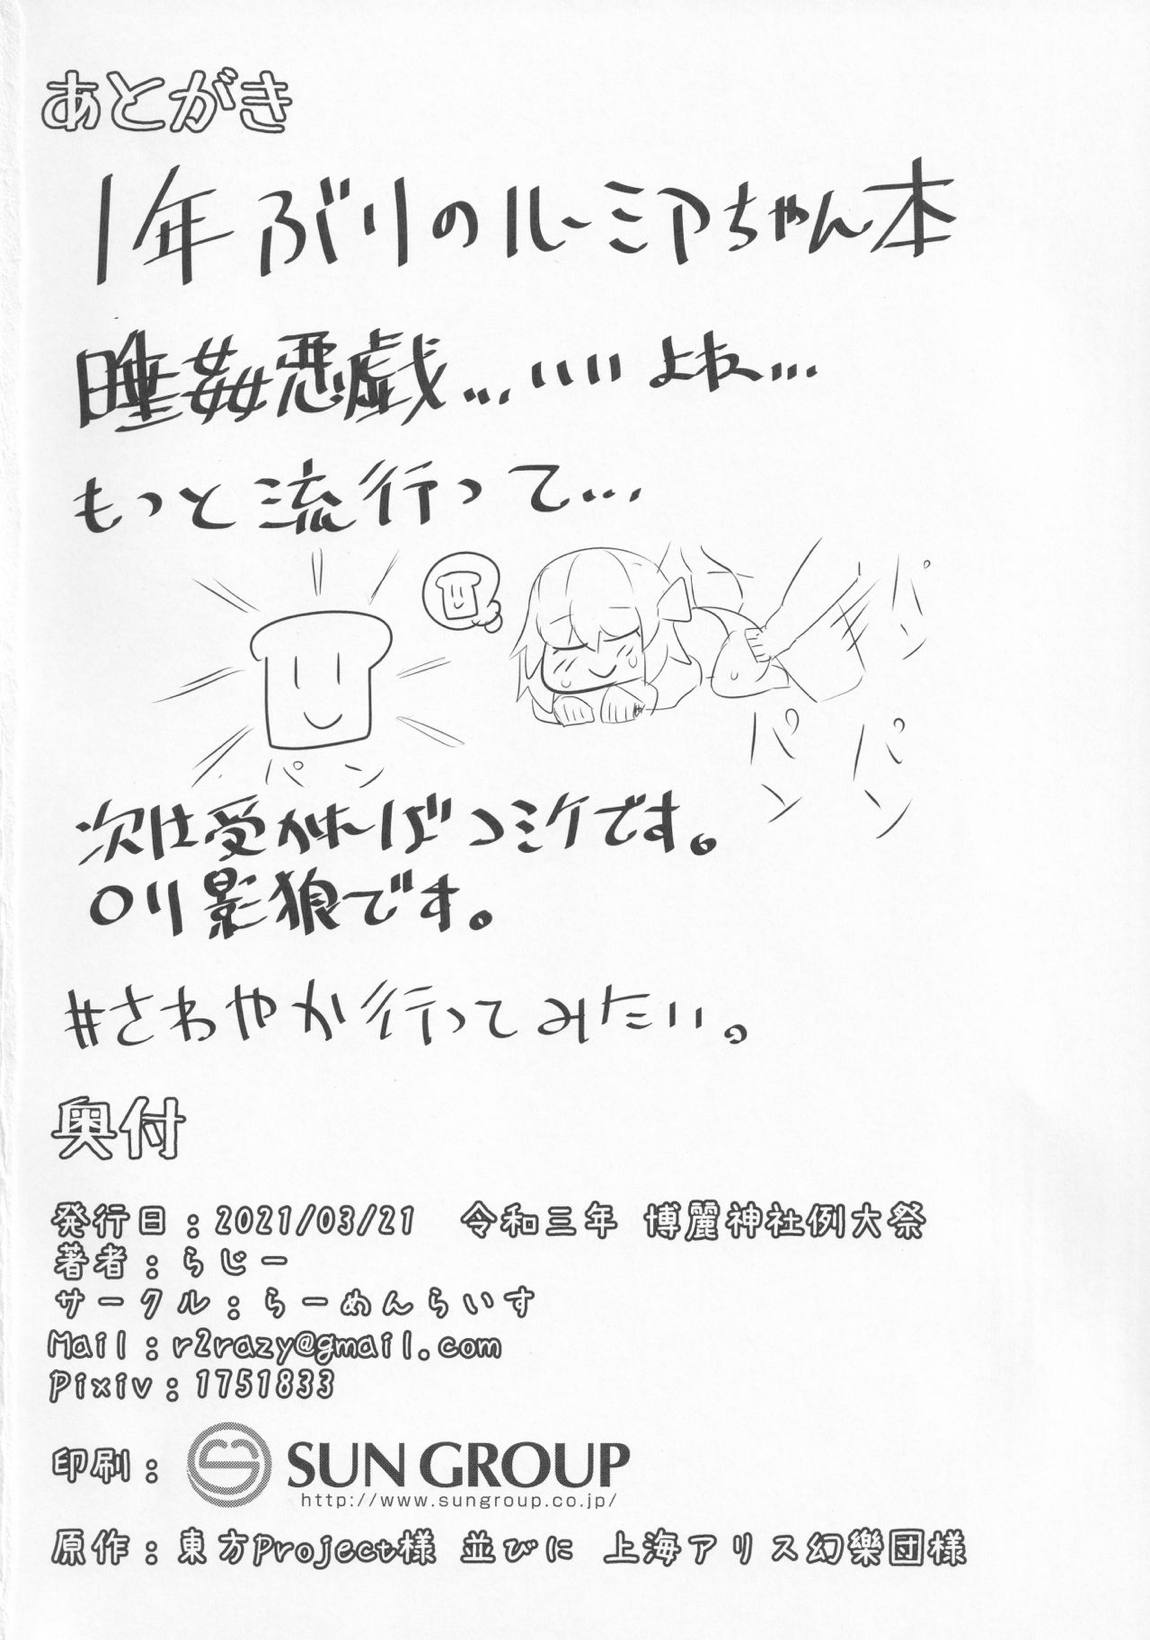 あとがき
1年ぶりのルーミアちゃん本
睡姦悪戯...いいよね...
もっと流行って...
パン
パン
パン
パン
次は受かればコミケです。
ロリ影狼です。
#さわやか行ってみたい。
奥付
発行日：2021/03/21 令和三年 博麗神社例大祭
著者：らじー
サークル：らーめんらいす
Mail：r2razy@gmail.com
Pixiv：1751833
印刷：SUN GROUP
http://www.sungroup.co.jp/
原作：東方Project様 並びに 上海アリス幻樂団様